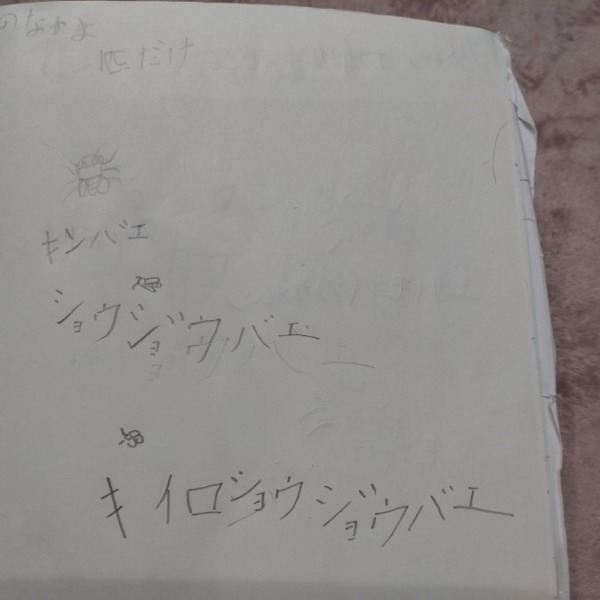 のなかま
匹だけ
キンバエ
ショウジョウバエ
キイロショウジョウバエ